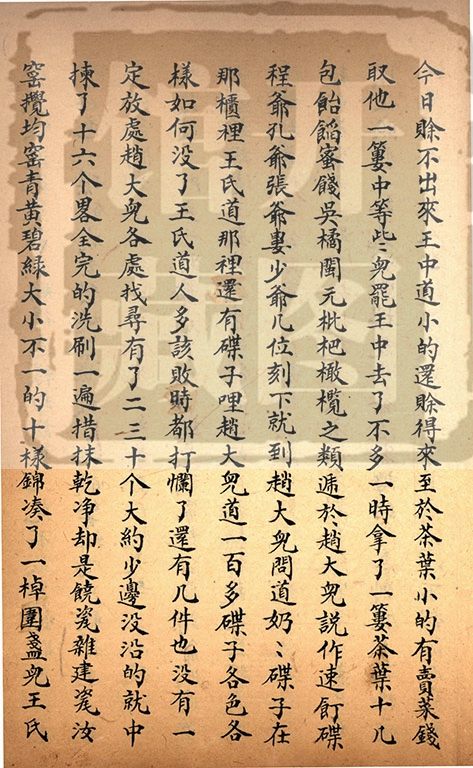 今日賖不出來王中道小的還賖得來至於茶葉小的有賣菜錢
取他一簍中等些兒罷王中去了不多一時拿了一簍茶葉十几
包飴餡蜜餞吳橘閩元枇杷橄欖之類遞於趙大兒説作速飣碟
程爺孔爺張爺婁少爺几位刻下就到趙大兒問道奶〻碟子在
那櫃裡王氏道那裡還有碟子哩趙大兒道一百多碟子各色各
樣如何没了王氏道人多該敗時都打爛了還有几件也没有一
定放處趙大兒各處找尋有了二三十个大約少邊没沿的就中
揀了十六个畧全完的洗刷一遍揩抹乾净却是饒瓷雜建瓷汝
窰攪均窰青黄碧綠大小不一的十樣錦凑了一棹圍盞兒王氏
开图
馆藏